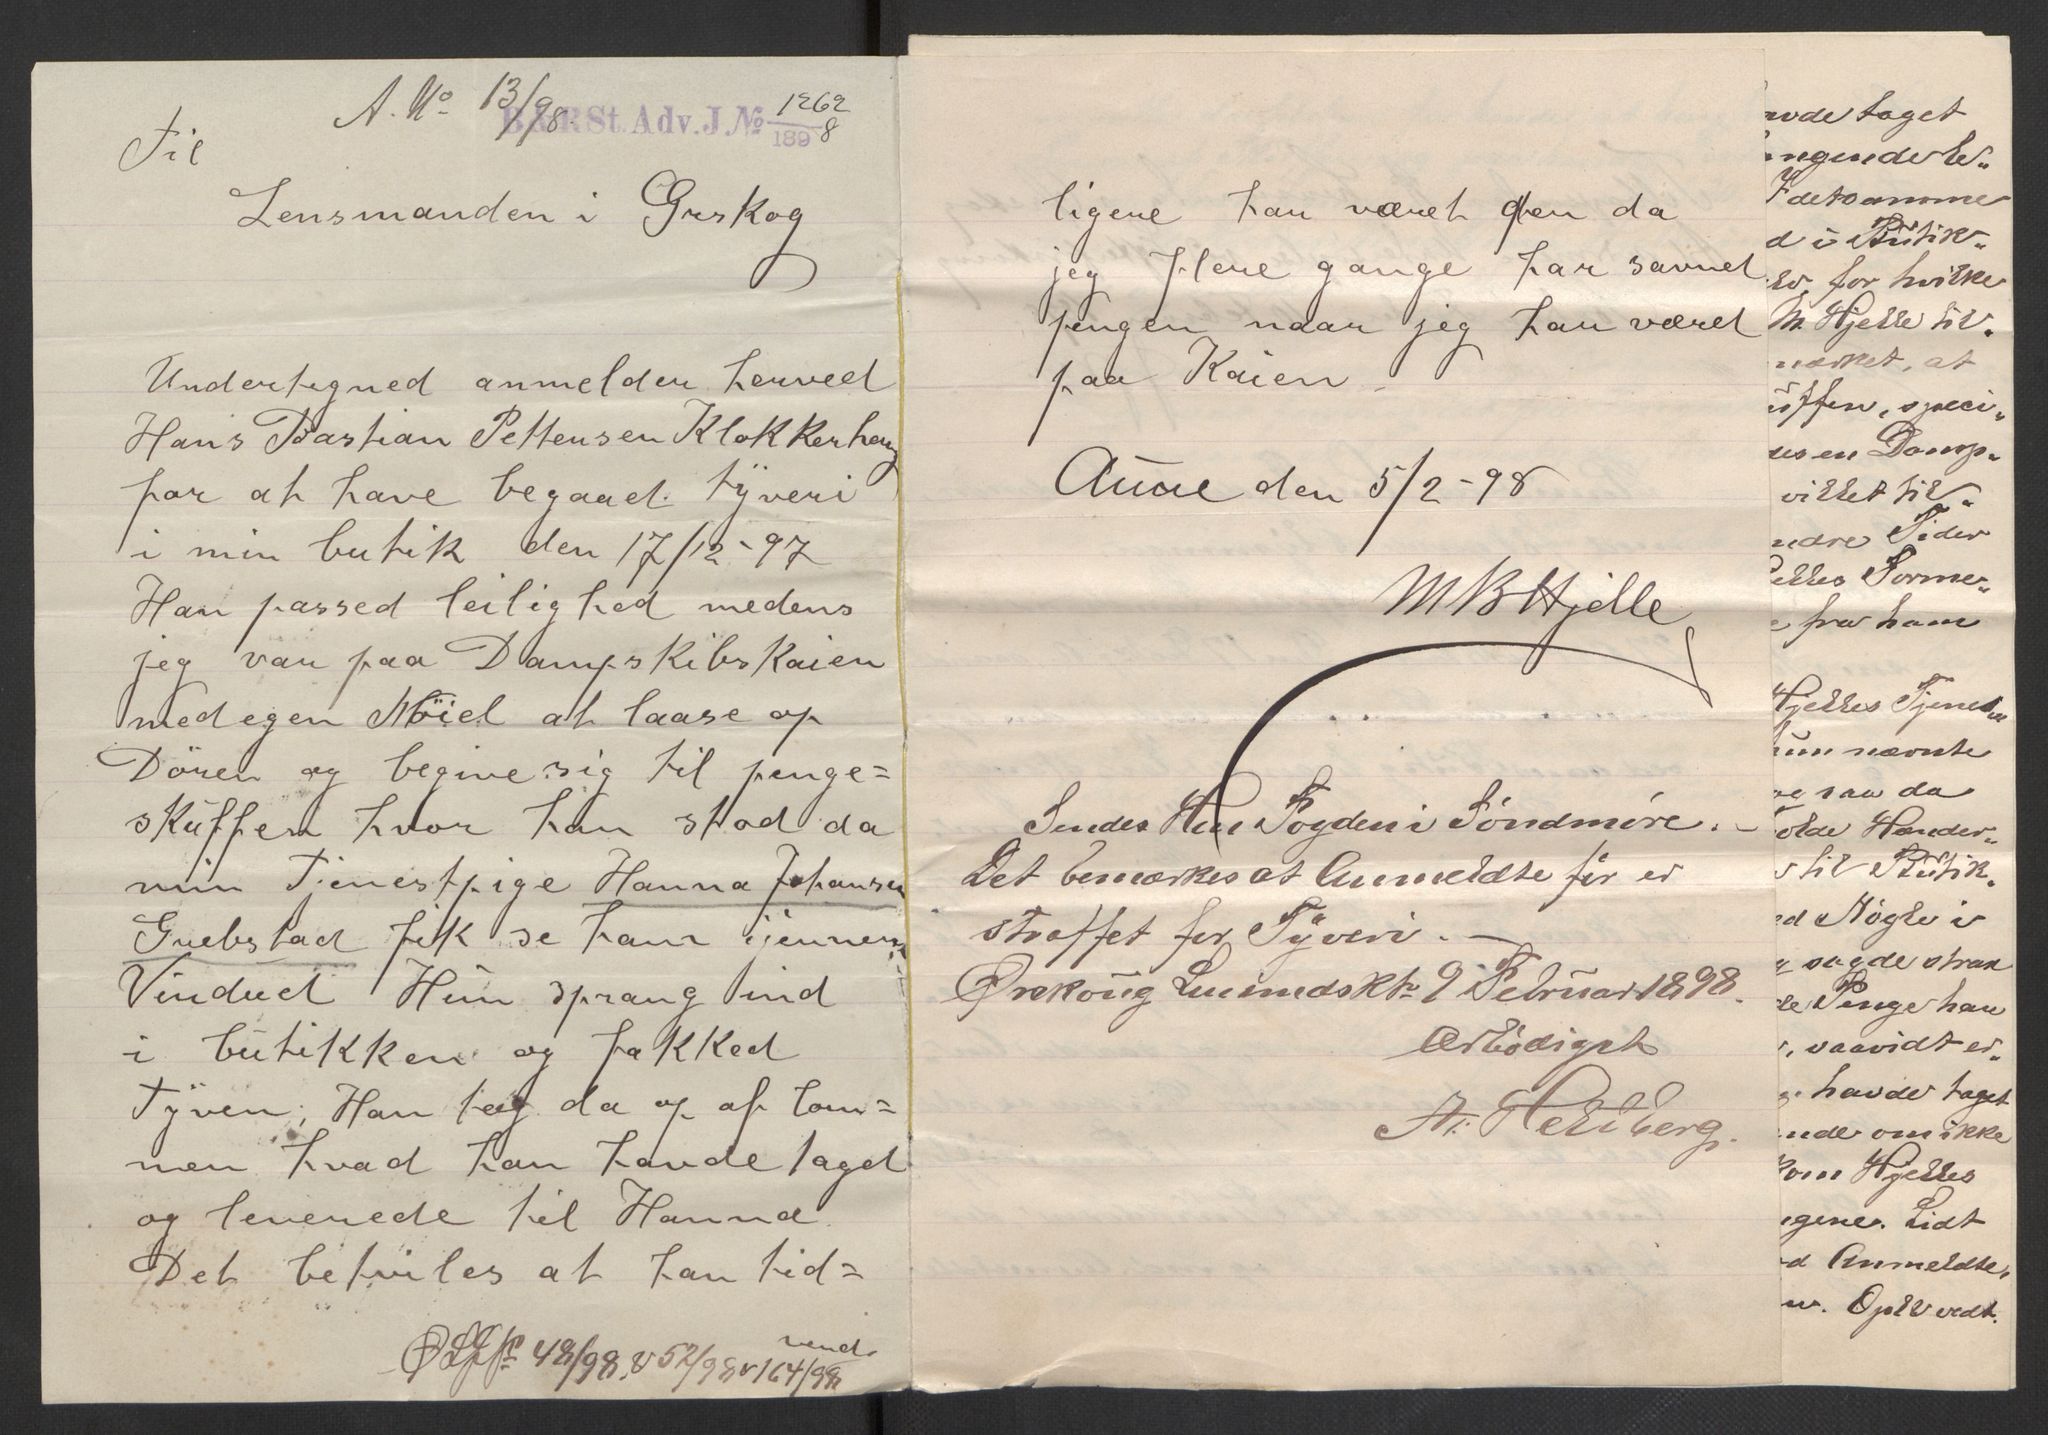 A. No 13/98.
B&RSt. Adv. J. No 1262/1898
Til
Lensmanden i Ørskog
Undertegned anmelder herved
Hans Bastian Pettersen Klokkerhaug
for at have begaaed tÿveri
i min butik den 17/12-97
Han passed leilighed medens
jeg var paa Dampskibskaien
med egen Nöiel at laase op
Dören og begive sig til penge=
skuffen hvor han stod da
min Tjenestpige Hanna Johansen
Grebstad fik se ham ijennem
Vindued Hun sprang ind
i butikken og fakked
Tÿven, Han tog da op af lom=
men hvad han havde taget
og leverede til Hanna
Det betviles at han tid=
vend
48/98, & 52/98 & 164/98
ligere har været den da
jeg flere gange har savnet
pengen naar jeg har været
paa Kaien
Aure den 5/2-98
M B Hjelle
Sendes Herr Fogden i Söndmöre. -
Det bemærkes at Anmeldte før er
straffet for Tÿveri. -
Ørskoug Lensmdskt 9 Februar 1898.
Ærbödigst
A. Hellberg.
avde taget
ngende le„
I det samme
d i Butik„
for hvilke
M. Hjelle til„
mærket, at
uffen, speci„
en Damp„
villet til„
ndre Tider
elles Somme„
fra ham
Hjelles Tjenes
hun nævnte
og saa da
olde Hænder„
til Butik„
d Nøgle i
sagde strax
de Penge han
, saavidt er„
havde taget
nde om ikke
kom Hjelles
gene. Lidt
d Anmeldte,
Oplævedt.